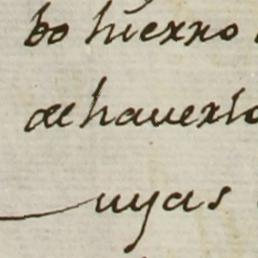 bo hierro
de haverlo
Cuyas